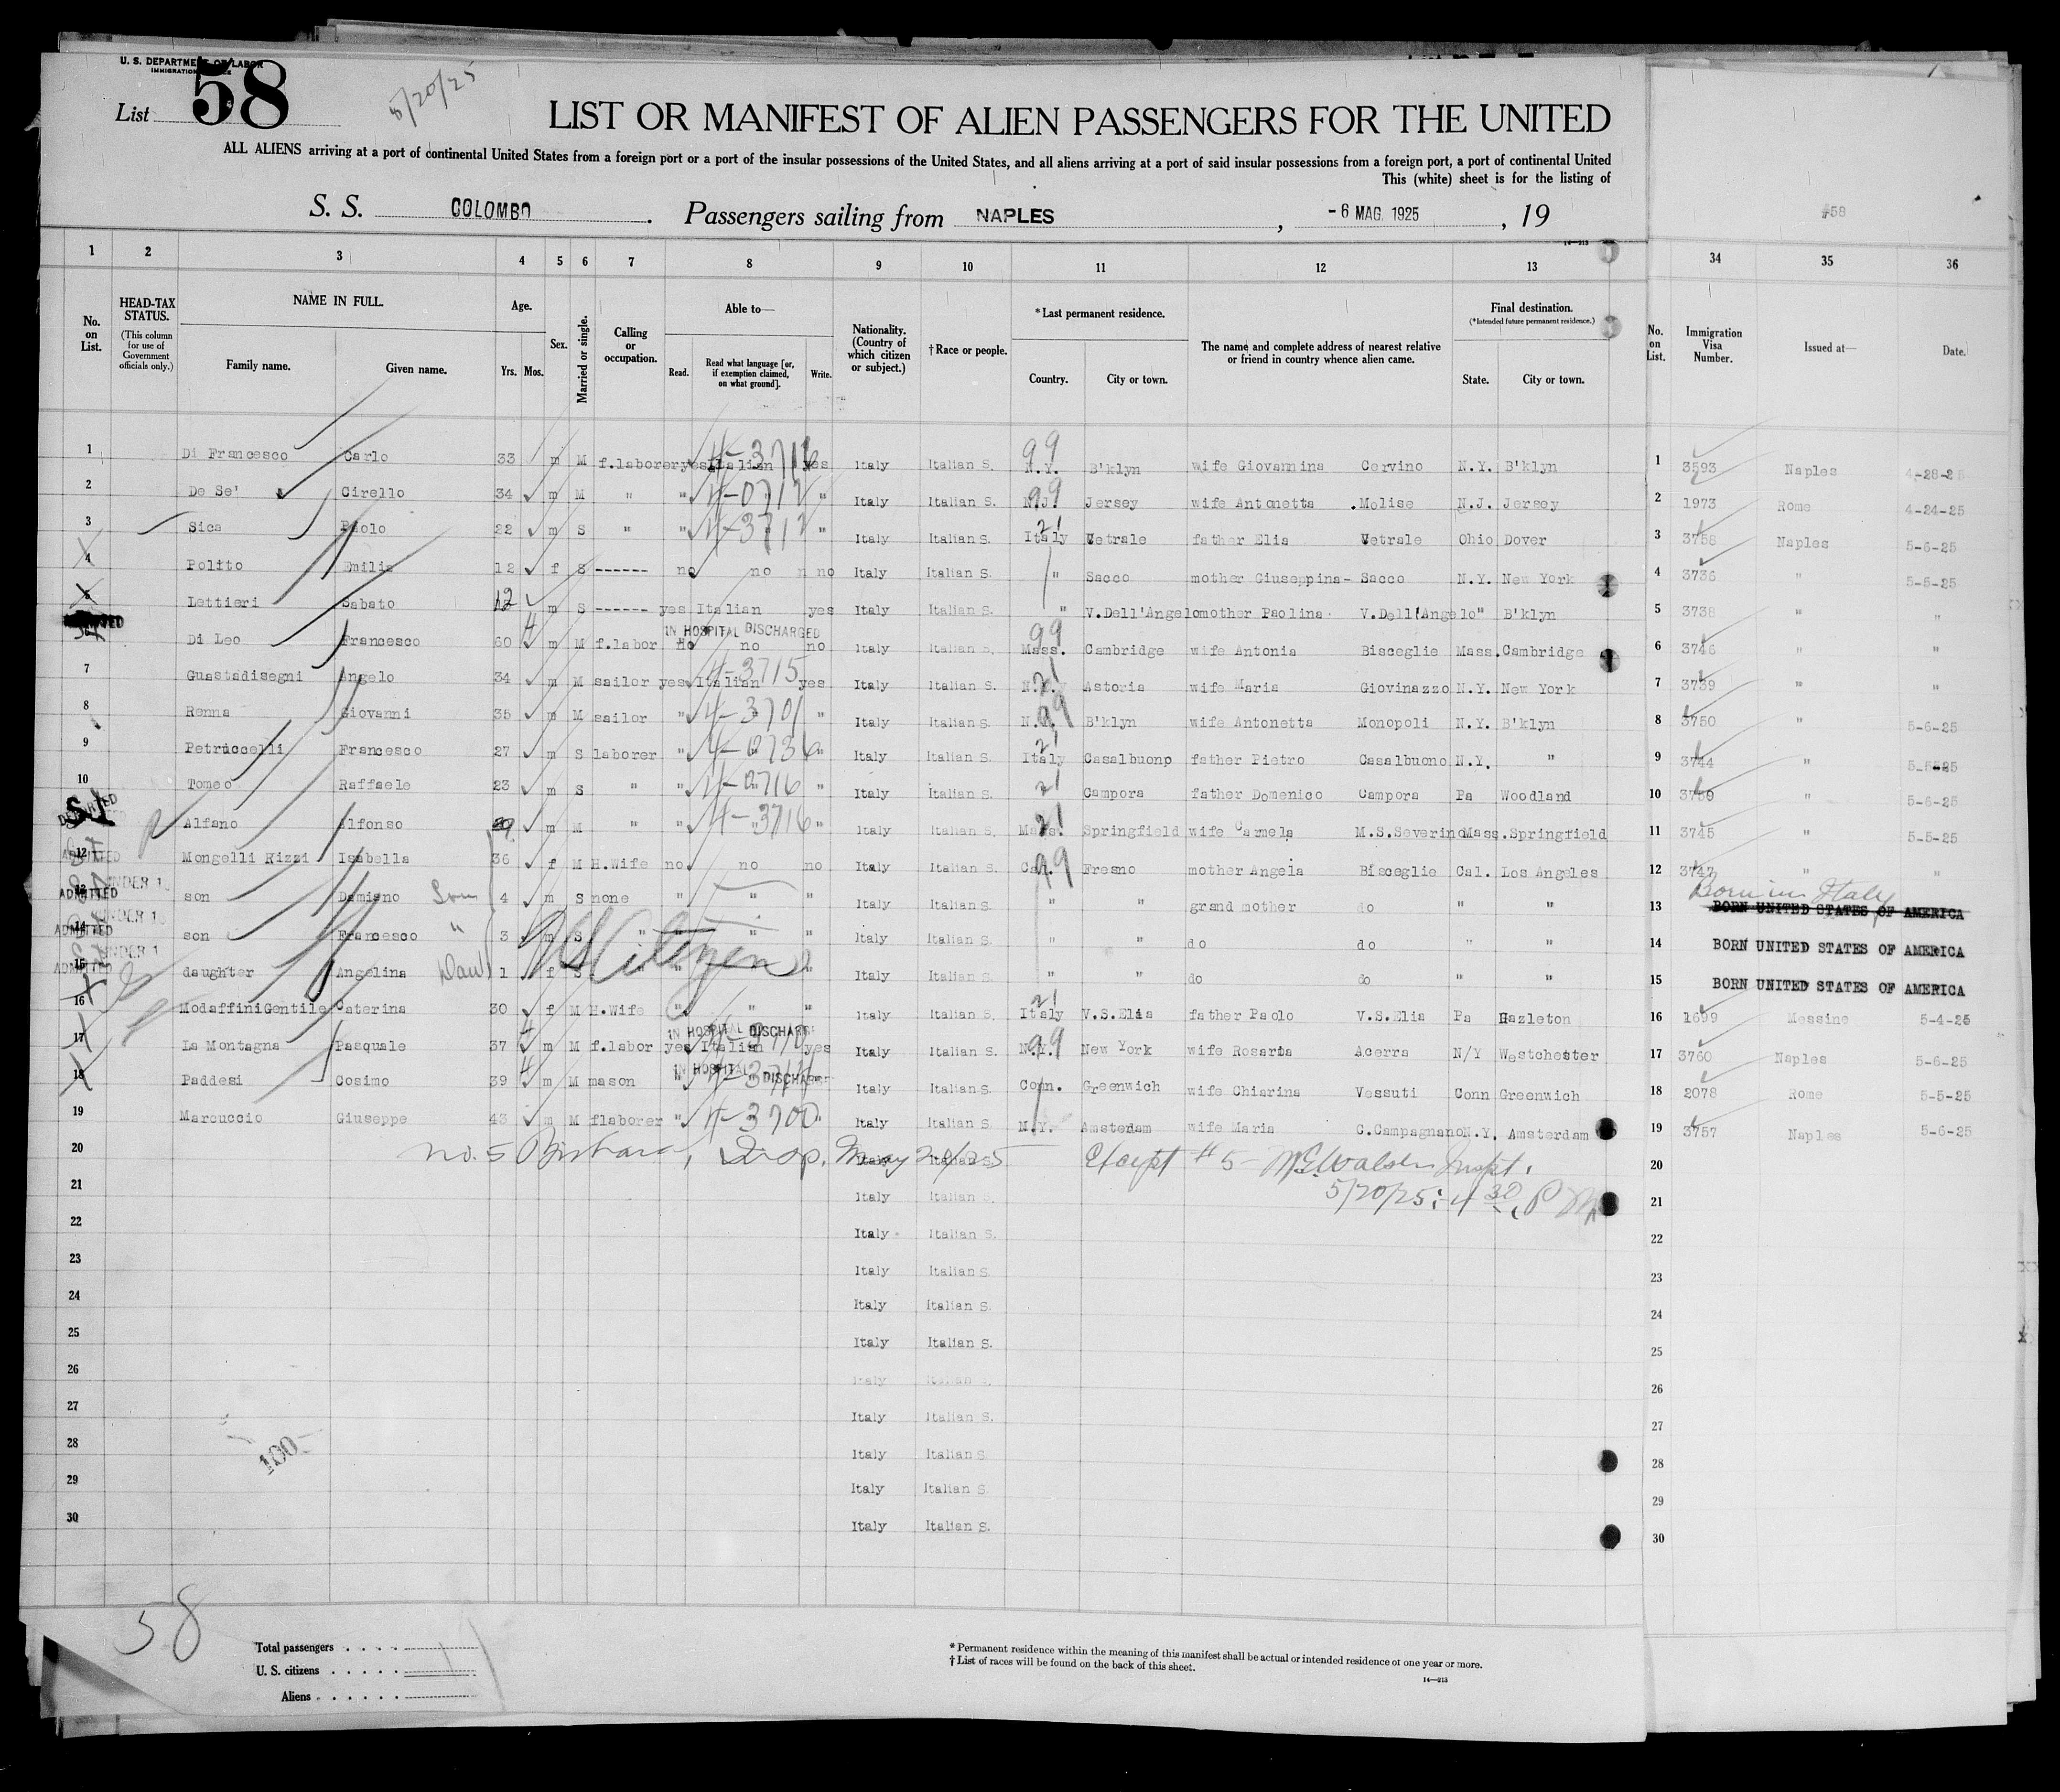 U. S. DEPARTMENT OF LABOR
IMMIGRATION
List 58
5/20/25
LIST OR MANIFEST OF ALIEN PASSENGERS FOR THE UNITED
ALL ALIENS arriving at a port of continental United States from a foreign port or a port of the insular possessions of the United States, and all aliens arriving at a port of said insular possessions from a foreign port, a port of continental United
This (white) sheet is for the listing of
S. S. COLOMBO . Passengers sailing from NAPLES , - 6 MAG. 1925 , 19
#58
14—213
1 2 3 4 5 6 7 8 9 10 11 12 13 34 35 36
No. on List. HEAD-TAX STATUS. (This column for use of Government officials only.) NAME IN FULL. Family name. Given name. Age. Yrs. Mos. Sex. Married or single. Calling or occupation. Able to— Read. Read what language [or, if exemption claimed, on what ground]. Write. Nationality. (Country of which citizen or subject.) †Race or people. *Last permanent residence. Country. City or town. The name and complete address of nearest relative or friend in country whence alien came. Final destination. (*Intended future permanent residence.) State. City or town. No. on List. Immigration Visa Number. Issued at— Date.
1 Di Francesco Carlo 33 m M f.laborer yes Italian 4-3716 yes Italy Italian S. 99 N.Y. B'klyn wife Giovannina Cervino N.Y. B'klyn 1 3593 Naples 4-28-25
2 De Se' Cirello 34 m M " " " Italy Italian S. 99 N.J. Jersey wife Antonetta .Molise N.J. Jersey 2 1973 Rome 4-24-25
3 Sica Paolo 22 m S " " " Italy Italian S. 21 Italy Vetrale father Elia Vetrale Ohio Dover 3 3758 Naples 5-6-25
4 Polito Emilia 12 f S ------ no no no Italy Italian S. " Sacco mother Giuseppina- Sacco N.Y. New York 4 3736 " 5-5-25
5 Lettieri Sabato 12 m S ------ yes Italian yes Italy Italian S. " V.Dell'Angelo mother Paolina V.Dell'Angelo " B'klyn 5 3738 " "
IN HOSPITAL DISCHARGED
Di Leo Francesco 60 m M f.labor no no no Italy Italian S. 99 Mass. Cambridge wife Antonia Bisceglie Mass. Cambridge 6 3746 " "
7 Guastadisegni Angelo 34 m M sailor yes Italian 4-3715 yes Italy Italian S. 21 Astoria wife Maria Giovinazzo N.Y. New York 7 3739 " "
8 Renna Giovanni 35 m M sailor " 4-3701 " Italy Italian S. 99 B'klyn wife Antonetta Monopoli N.Y. B'klyn 8 3750 " 5-6-25
9 Petruccelli Francesco 27 m S laborer " " Italy Italian S. 21 Italy Casalbuono father Pietro Casalbuono N.Y. " 9 3744 " 5-5-25
10 Tomeo Raffaele 23 m S " " " Italy Italian S. 21 Campora father Domenico Campora Pa Woodland 10 " 5-6-25
Alfano Alfonso m M " " 4-3716 " Italy Italian S. 21 Mass. Springfield wife Carmela M.S.Severino Mass. Springfield 11 3745 " 5-5-25
12 ADMITTED Mongelli Rizzi Isabella 36 f M H.Wife no no no Italy Italian S. 99 Cal. Fresno mother Angela Bisceglie Cal. Los Angeles 12 3747 " "
ADMITTED UNDER son Damiano Son 4 m S none " " " Italy Italian S. " " grand mother do " " 13 Born in Italy BORN UNITED STATES OF AMERICA
14 ADMITTED UNDER son Francesco " 3 m S " " " " Italy Italian S. " " do do " " 14 BORN UNITED STATES OF AMERICA
US Citizen
15 ADMITTED UNDER daughter Angelina Dau 1 f S " " Italy Italian S. " " do do " " 15 BORN UNITED STATES OF AMERICA
16 Modaffini Gentile Caterina 30 f M H.Wife " " " Italy Italian S. 21 Italy V.S.Elia father Paolo V.S.Elia Pa Hazleton 16 1699 Messina 5-4-25
IN HOSPITAL DISCHARGE
17 La Montagna Pasquale 37 m M f.labor yes Italian yes Italy Italian S. 99 N.Y. New York wife Rosaria Acerra N/Y Westchester 17 3760 Naples 5-6-25
IN HOSPITAL DISCHARGE
18 Paddesi Cosimo 39 m M mason " Italy Italian S. Conn. Greenwich wife Chiarina Vessuti Conn Greenwich 18 2078 Rome 5-5-25
19 Marcuccio Giuseppe 43 m M flaborer " 4-3700 " Italy Italian S. N.Y. Amsterdam wife Maria C.Campagnano N.Y. Amsterdam 19 3757 Naples 5-6-25
20 no. 5 Insp. May 20/25 Italy Italian S. Except #5 - Inspt. 20
21 Italy Italian S. 5/20/25: 4 30 P M 21
22 Italy Italian S. 22
23 Italy Italian S. 23
24 Italy Italian S. 24
25 Italy Italian S. 25
26 Italy Italian S. 26
27 Italy Italian S. 27
28 Italy Italian S. 28
29 Italy Italian S. 29
30 Italy Italian S. 30
100
58
Total passengers
U. S. citizens
Aliens
* Permanent residence within the meaning of this manifest shall be actual or intended residence of one year or more.
† List of races will be found on the back of this sheet.
14—213